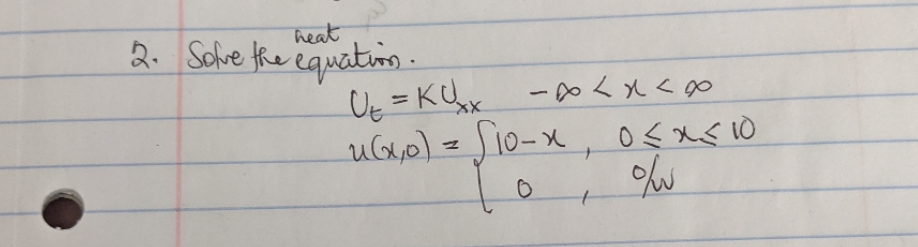 2. Solve the heat equation.
U_t = KU_xx   -∞ < x < ∞
u(x,0) = { 10-x , 0 ≤ x ≤ 10
0 , o/w